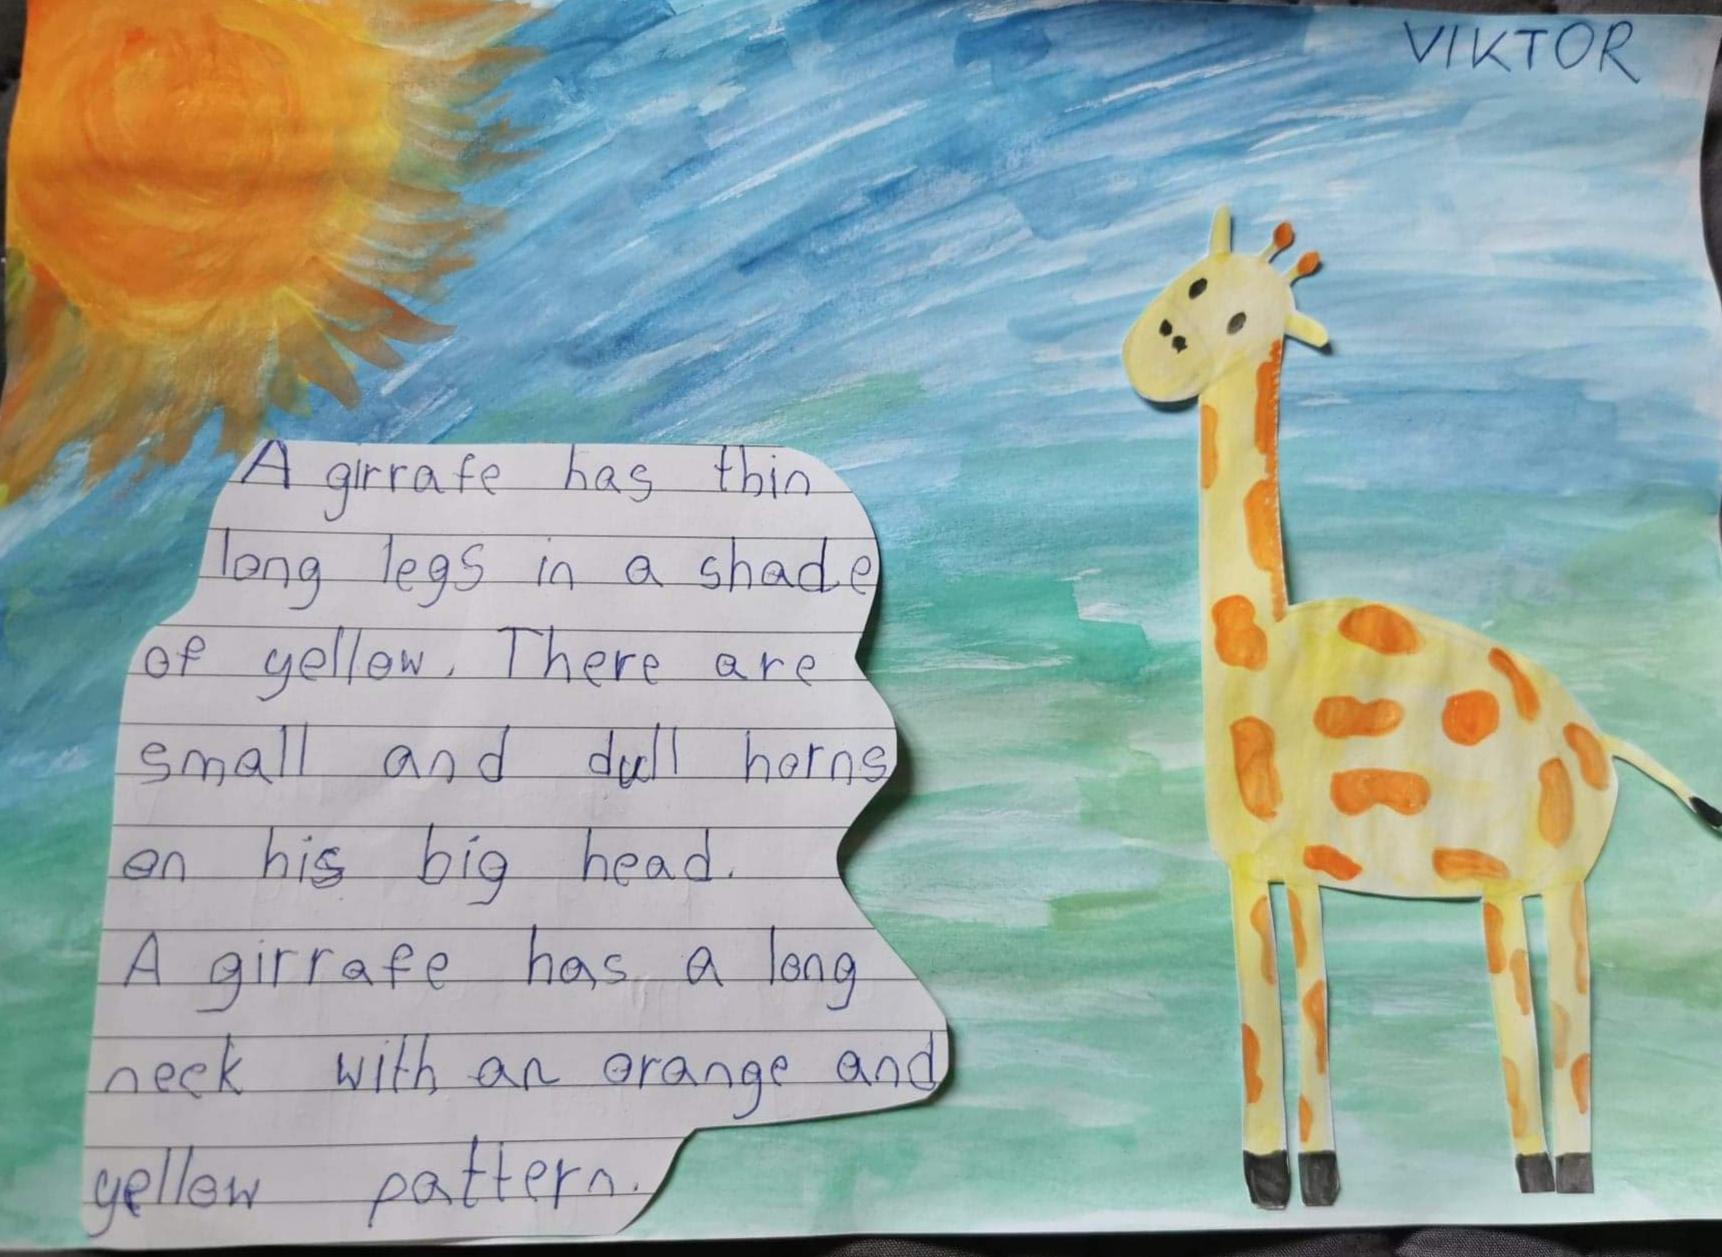 VIKTOR
A girrafe has thin
long legs in a shade
of yellow. There are
small and dull horns
on his big head.
A girrafe has a long
neck with an orange and
yellow pattern.